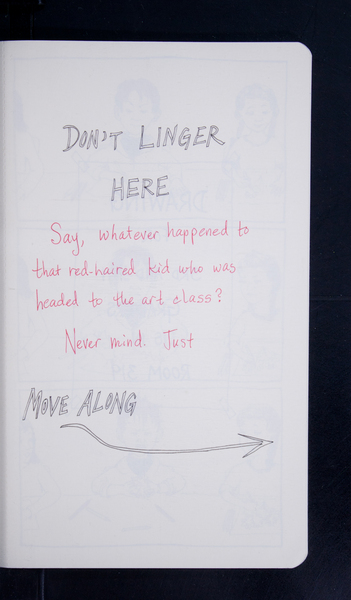 DON'T LINGER
HERE
Say, whatever happened to
that red-haired kid who was
headed to the art class?
Never mind. Just
MOVE ALONG